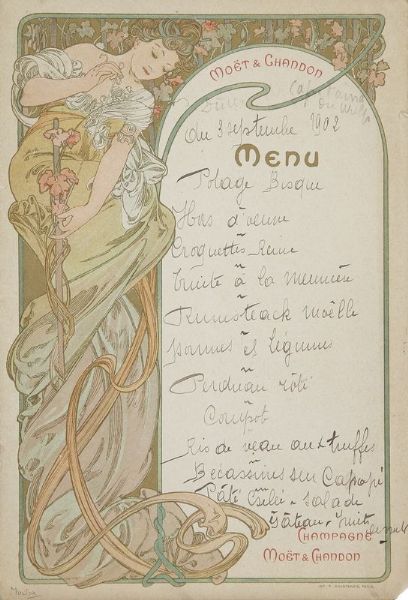 MOËT & CHANDON
du 3 septembre 1902
MENU
Potage Bisque
Hors d'œuvre
Croquettes Reine
Truite à la Meunière
Rumsteack moëlle
pommes et légumes
Perdreau rôti
Compot
Ris de veau aux truffes
Becassines sur Canapé
Pâté salade
Gâteau fruits
CHAMPAGNE
MOËT & CHANDON
Mucha